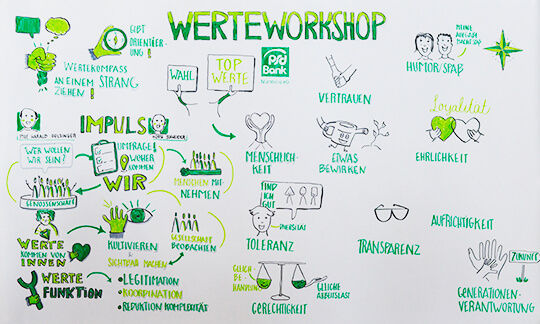 WERTEWORKSHOP
GIBT
ORIENTIER-
UNG!
WERTEKOMPASS
AN EINEM STRANG
ZIEHEN!
WAHL
TOP
WERTE
PSD
Bank
VERTRAUEN
HUMOR/SPAß
IMPULS
WER WOLLEN
WIR SEIN?
UMFRAGE!
WOHER
KOMMEN
WIR
GENOSSENSCHAFT
MENSCHEN MIT-
NEHMEN
WERTE
KOMMEN VON
INNEN
KULTIVIEREN
&
SICHTBAR MACHEN
GESELLSCHAFT
BEOBACHTEN
WERTE
FUNKTION
• LEGITIMATION
• KOORDINATION
• REDUKTION KOMPLEXITÄT
MENSCHLICH-
KEIT
ETWAS
BEWIRKEN
Loyalität
EHRLICHKEIT
FIND
ICH
GUT
TOLERANZ
TRANSPARENZ
AUFRICHTIGKEIT
GLEICH-
BE-
HANDLUNG
GLEICHE
ARBEITSLAST
GERECHTIGKEIT
ZUKUNFT
GENERATIONEN-
VERANTWORTUNG